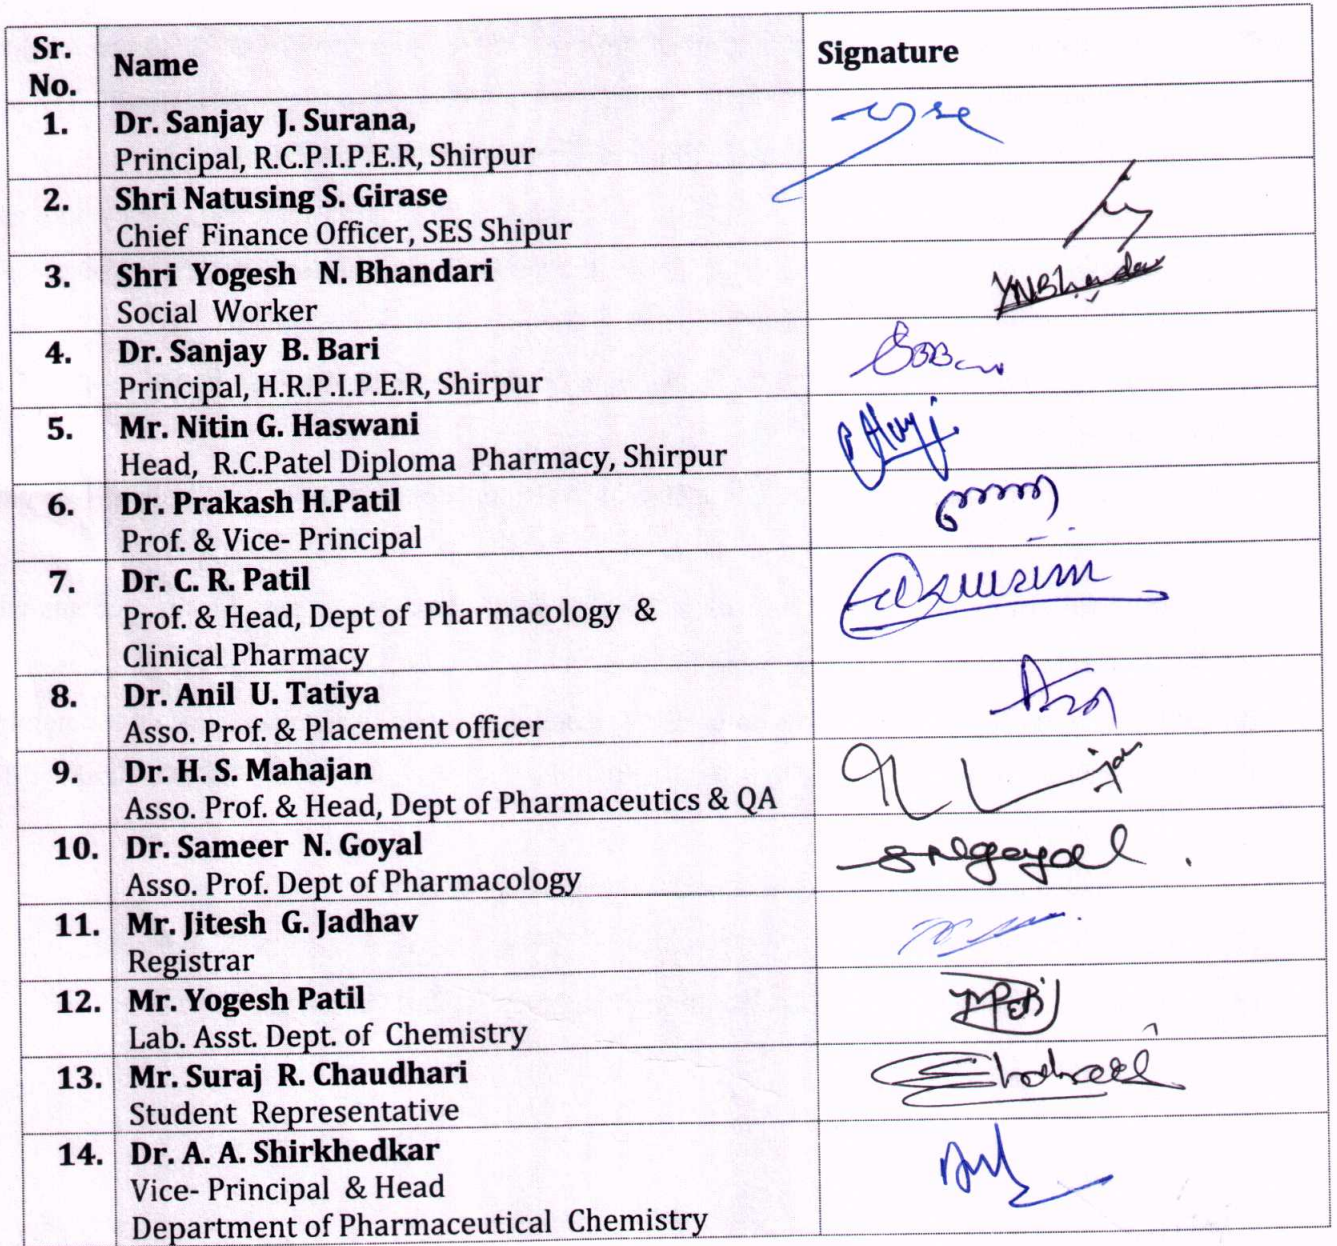 Sr. No. Name Signature
1. Dr. Sanjay J. Surana,
Principal, R.C.P.I.P.E.R, Shirpur
2. Shri Natusing S. Girase
Chief Finance Officer, SES Shipur
3. Shri Yogesh N. Bhandari
Social Worker
4. Dr. Sanjay B. Bari
Principal, H.R.P.I.P.E.R, Shirpur
5. Mr. Nitin G. Haswani
Head, R.C.Patel Diploma Pharmacy, Shirpur
6. Dr. Prakash H.Patil
Prof. & Vice- Principal
7. Dr. C. R. Patil
Prof. & Head, Dept of Pharmacology &
Clinical Pharmacy
8. Dr. Anil U. Tatiya
Asso. Prof. & Placement officer
9. Dr. H. S. Mahajan
Asso. Prof. & Head, Dept of Pharmaceutics & QA
10. Dr. Sameer N. Goyal
Asso. Prof. Dept of Pharmacology
11. Mr. Jitesh G. Jadhav
Registrar
12. Mr. Yogesh Patil
Lab. Asst. Dept. of Chemistry
13. Mr. Suraj R. Chaudhari
Student Representative
14. Dr. A. A. Shirkhedkar
Vice- Principal & Head
Department of Pharmaceutical Chemistry